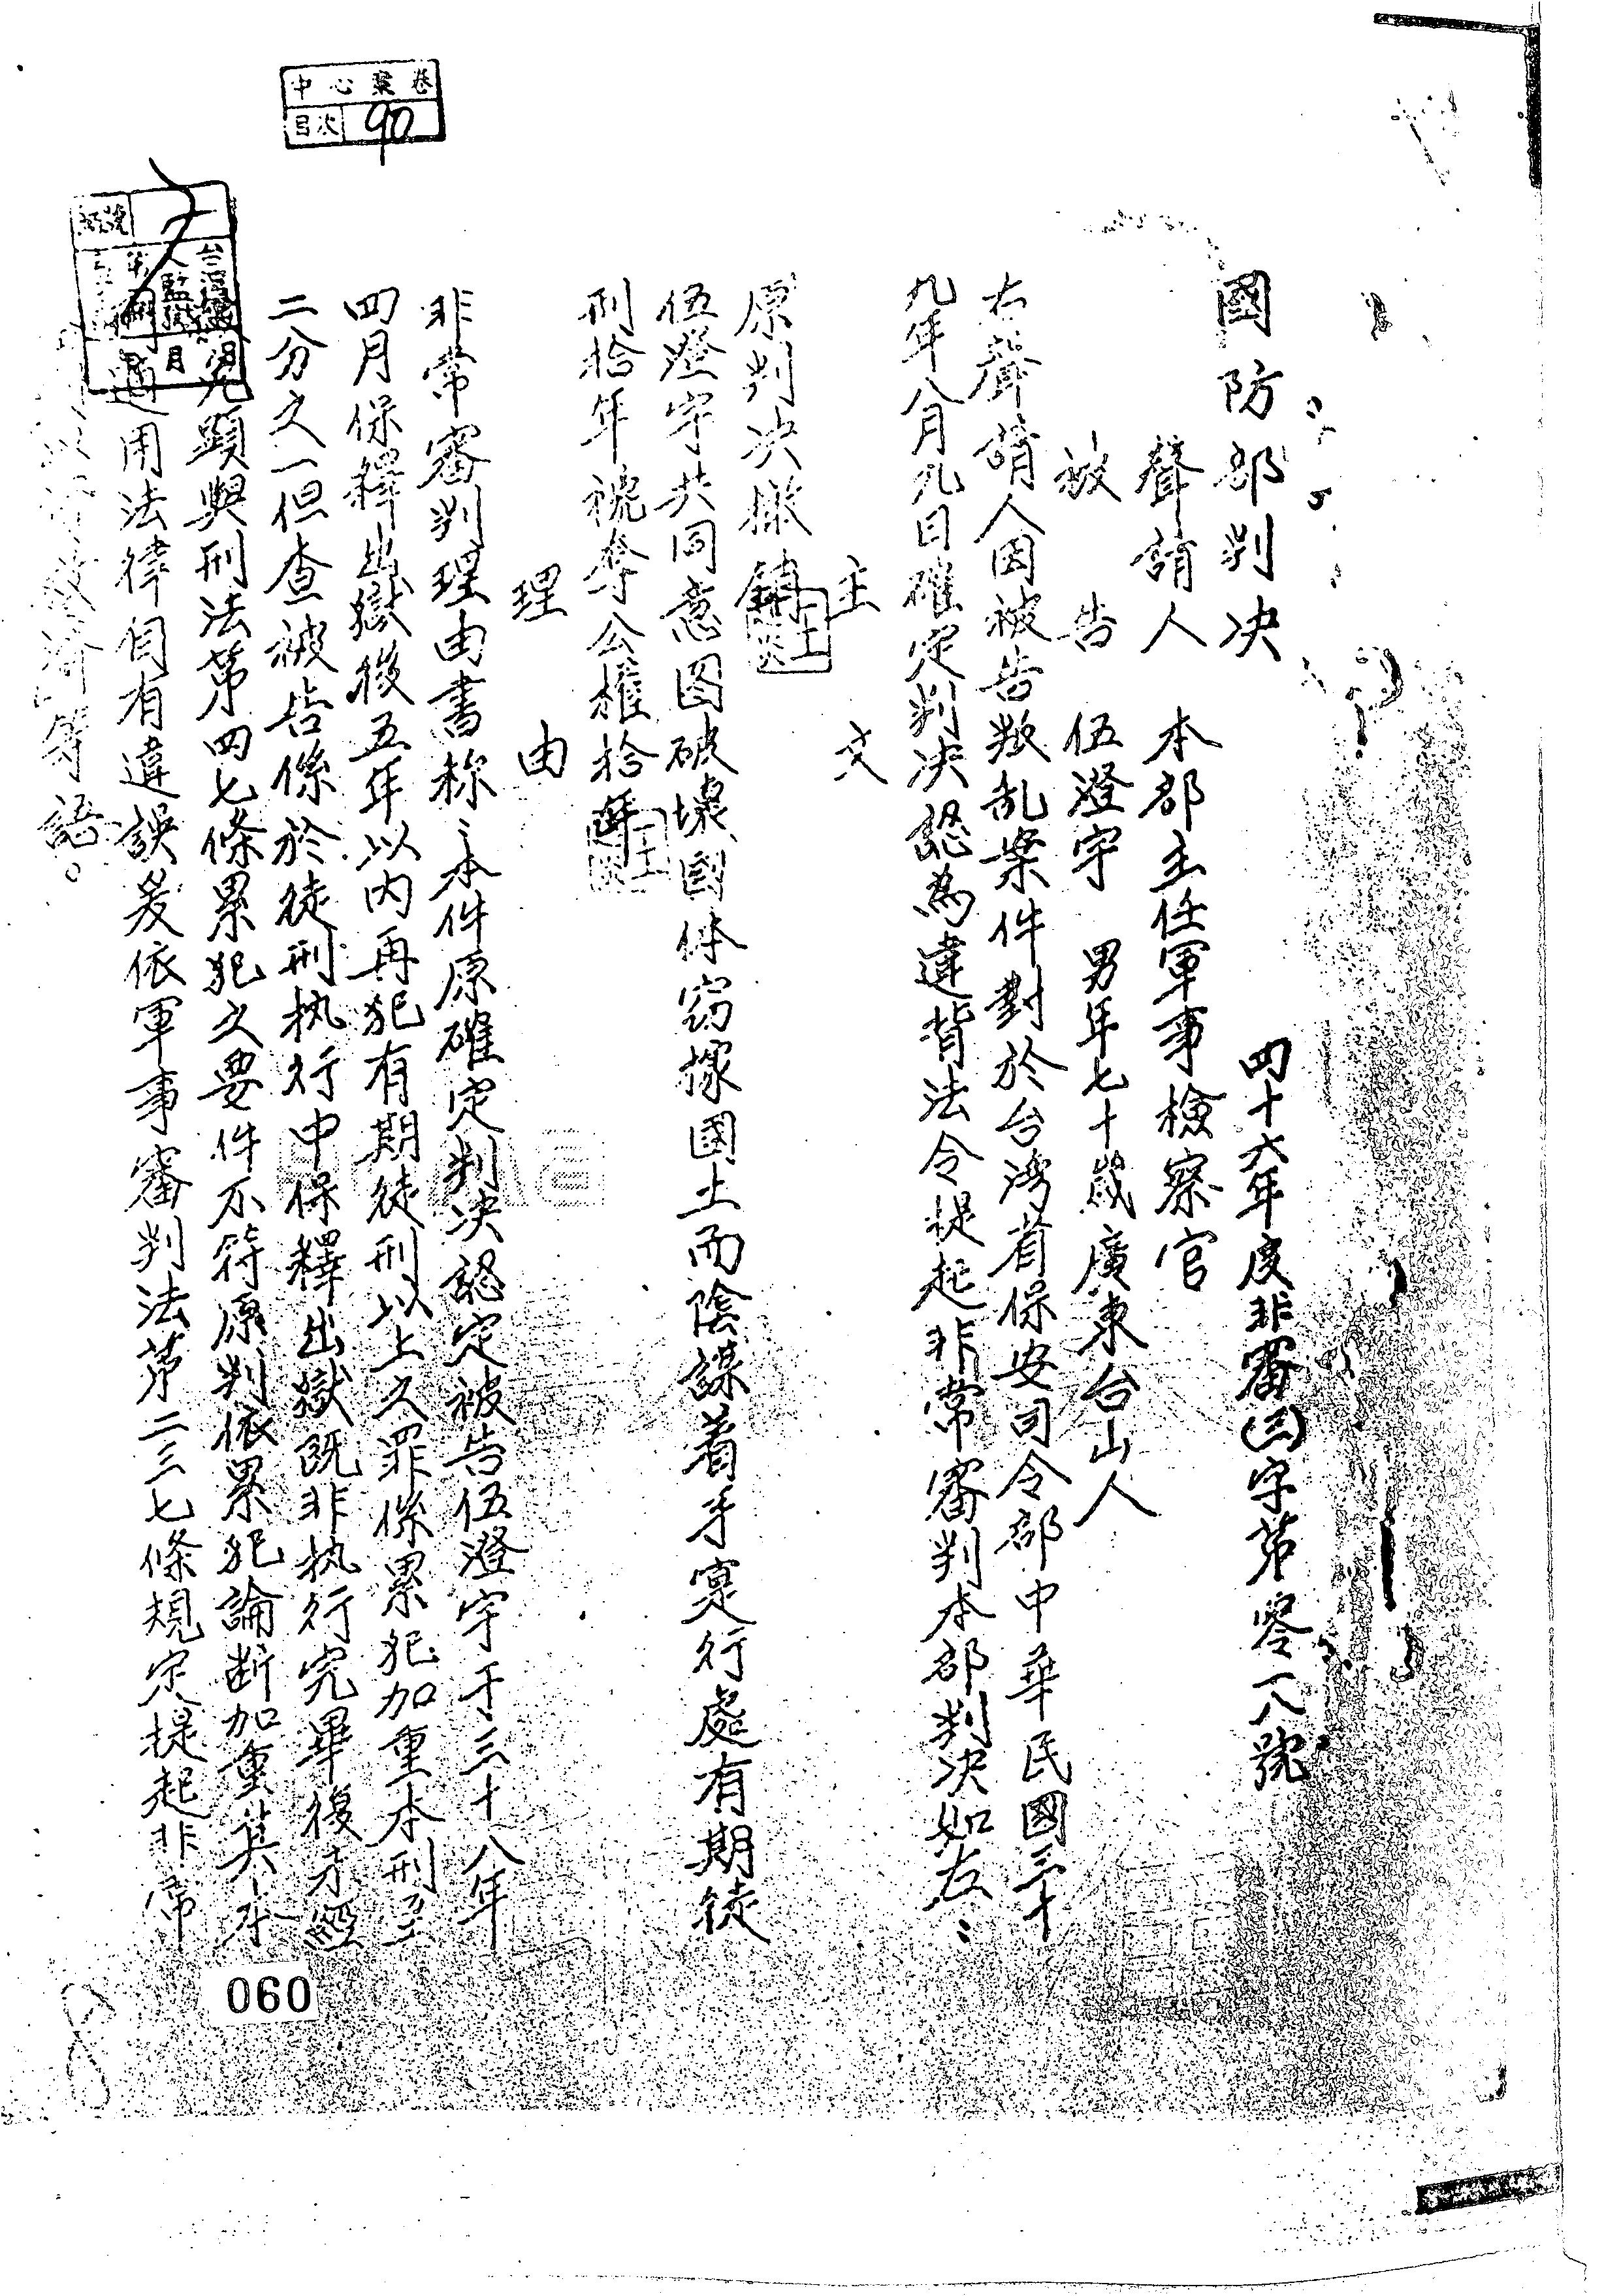 中心案卷
目次 90
國防部判決
四十六年度非審(三)字第零一八號
聲請人 本部主任軍事檢察官
被告 伍澄宇 男年七十歲廣東台山人
右聲請人因被告叛乱案件對於台灣省保安司令部中華民國三十
九年八月九日確定判決認為違背法令提起非常審判本部判決如左：
主文
原判決撤銷
伍澄宇共同意図破壞國体窃據國土而陰謀着手実行處有期徒
刑拾年褫奪公權拾年
理由
非常審判理由書称：本件原確定判決認定被告伍澄宇于三十八年
四月保釋出獄後五年以内再犯有期徒刑以上之罪係累犯加重本刑至
二分之一但查被告係於徒刑执行中保釋出獄既非执行完畢後亦經
顕與刑法第四七條累犯之要件不符原判依累犯論断加重其本
適用法律自有違誤爰依軍事審判法第二三七條規定提起非常
等語。
060